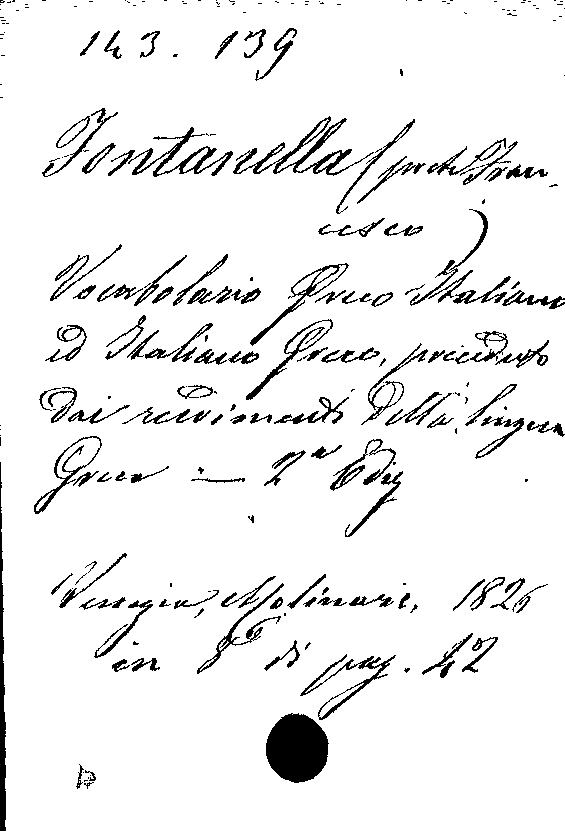 143. 139
Fontanella (prete Fran-
cesco)
Vocabolario Greco-Italiano
ed Italiano Greco, preceduto
dai rudimenti della lingua
Greca — 2ª Ediz
Venezia, Molinari, 1826
in 8º di pag. 42